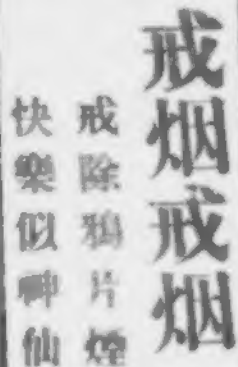 戒烟戒烟
戒除鴉片煙
快樂似神仙